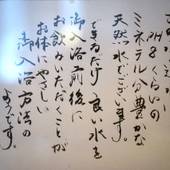 ミネラル分豊かな
天然水でございます。
できるだけ良い水を
御入浴前後に
お飲みいただくことが
お体にやさしい
御入浴方法の
ようです。